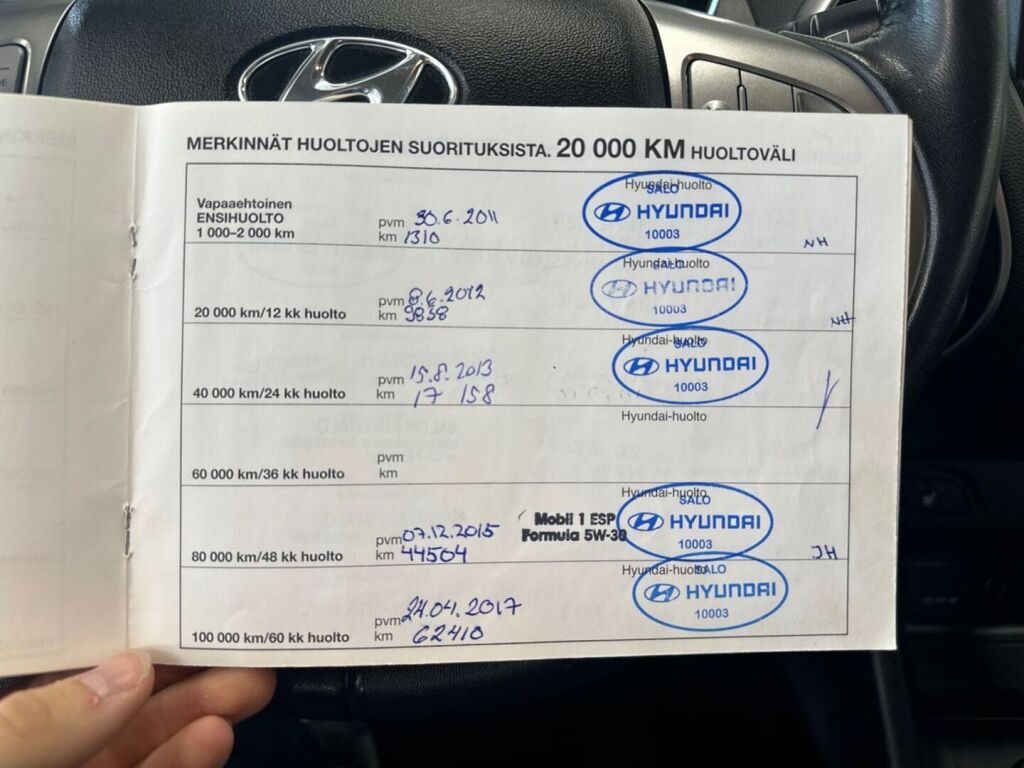 MERKINNÄT HUOLTOJEN SUORITUKSISTA. 20 000 KM HUOLTOVÄLI
Vapaaehtoinen
ENSIHUOLTO
1 000–2 000 km
pvm 30.6.2011
km 1310
Hyundai-huolto
SALO
HYUNDAI
10003
NH
20 000 km/12 kk huolto
pvm 8.6.2012
km 9838
Hyundai-huolto
SALO
HYUNDAI
10003
NH
40 000 km/24 kk huolto
pvm 15.8.2013
km 17 158
Hyundai-huolto
SALO
HYUNDAI
10003
60 000 km/36 kk huolto
pvm
km
Hyundai-huolto
80 000 km/48 kk huolto
pvm 07.12.2015
km 44504
Mobil 1 ESP
Formula 5W-30
Hyundai-huolto
SALO
HYUNDAI
10003
JH
100 000 km/60 kk huolto
pvm 24.04.2017
km 62410
Hyundai-huolto
SALO
HYUNDAI
10003